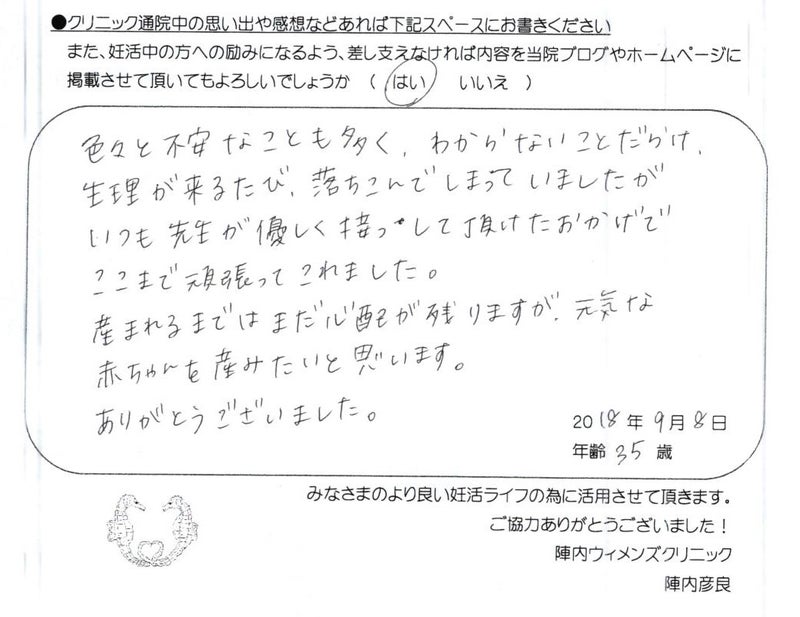 ●クリニック通院中の思い出や感想などあれば下記スペースにお書きください
また、妊活中の方への励みになるよう、差し支えなければ内容を当院ブログやホームページに
掲載させて頂いてもよろしいでしょうか ( はい いいえ )
色々と不安なことも多く、わからないことだらけ、
生理が来るたび、落ちこんでしまっていましたが
いつも先生が優しく接っして頂けたおかげで
ここまで頑張ってこれました。
産まれるまではまだ心配が残りますが、元気な
赤ちゃんを産みたいと思います。
ありがとうございました。
2018年9月8日
年齢 35 歳
みなさまのより良い妊活ライフの為に活用させて頂きます。
ご協力ありがとうございました!
陣内ウィメンズクリニック
陣内彦良